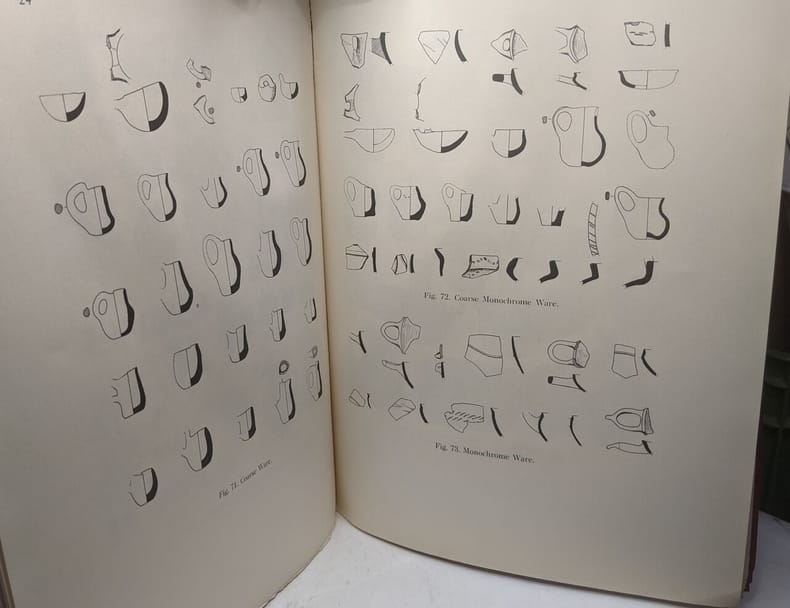 24
Fig. 71. Coarse Ware.
Fig. 72. Coarse Monochrome Ware.
Fig. 73. Monochrome Ware.